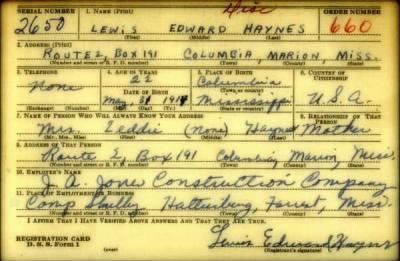 Disc
SERIAL NUMBER 1. NAME (Print) ORDER NUMBER
2650 LEWIS EDWARD HAYNES 660
(First) (Middle) (Last)
2. ADDRESS (Print)
ROUTE 2, BOX 191 COLUMBIA, MARION, MISS.
(Number and street or R. F. D. number) (Town) (County) (State)
3. TELEPHONE 4. AGE IN YEARS 5. PLACE OF BIRTH 6. COUNTRY OF CITIZENSHIP
None 22 Columbia
(Town or county)
DATE OF BIRTH
May 31 1919 Mississippi U.S.A.
(Exchange) (Number) (Mo.) (Day) (Yr.) (State or country)
7. NAME OF PERSON WHO WILL ALWAYS KNOW YOUR ADDRESS 8. RELATIONSHIP OF THAT PERSON
Mrs. (None) Haynes Mother
(Mr., Mrs., Miss) (First) (Middle) (Last)
9. ADDRESS OF THAT PERSON
Route 2, Box 191 Columbia Marion Miss
(Number and street or R. F. D. number) (Town) (County) (State)
10. EMPLOYER'S NAME
Construction Company
11. PLACE OF EMPLOYMENT OR BUSINESS
Camp Shelby Hattiesburg, Forrest, Miss.
(Number and street or R. F. D. number) (Town) (County) (State)
I AFFIRM THAT I HAVE VERIFIED ABOVE ANSWERS AND THAT THEY ARE TRUE.
REGISTRATION CARD
D. S. S. Form 1 Lewis Edward Haynes
(Registrant's signature)